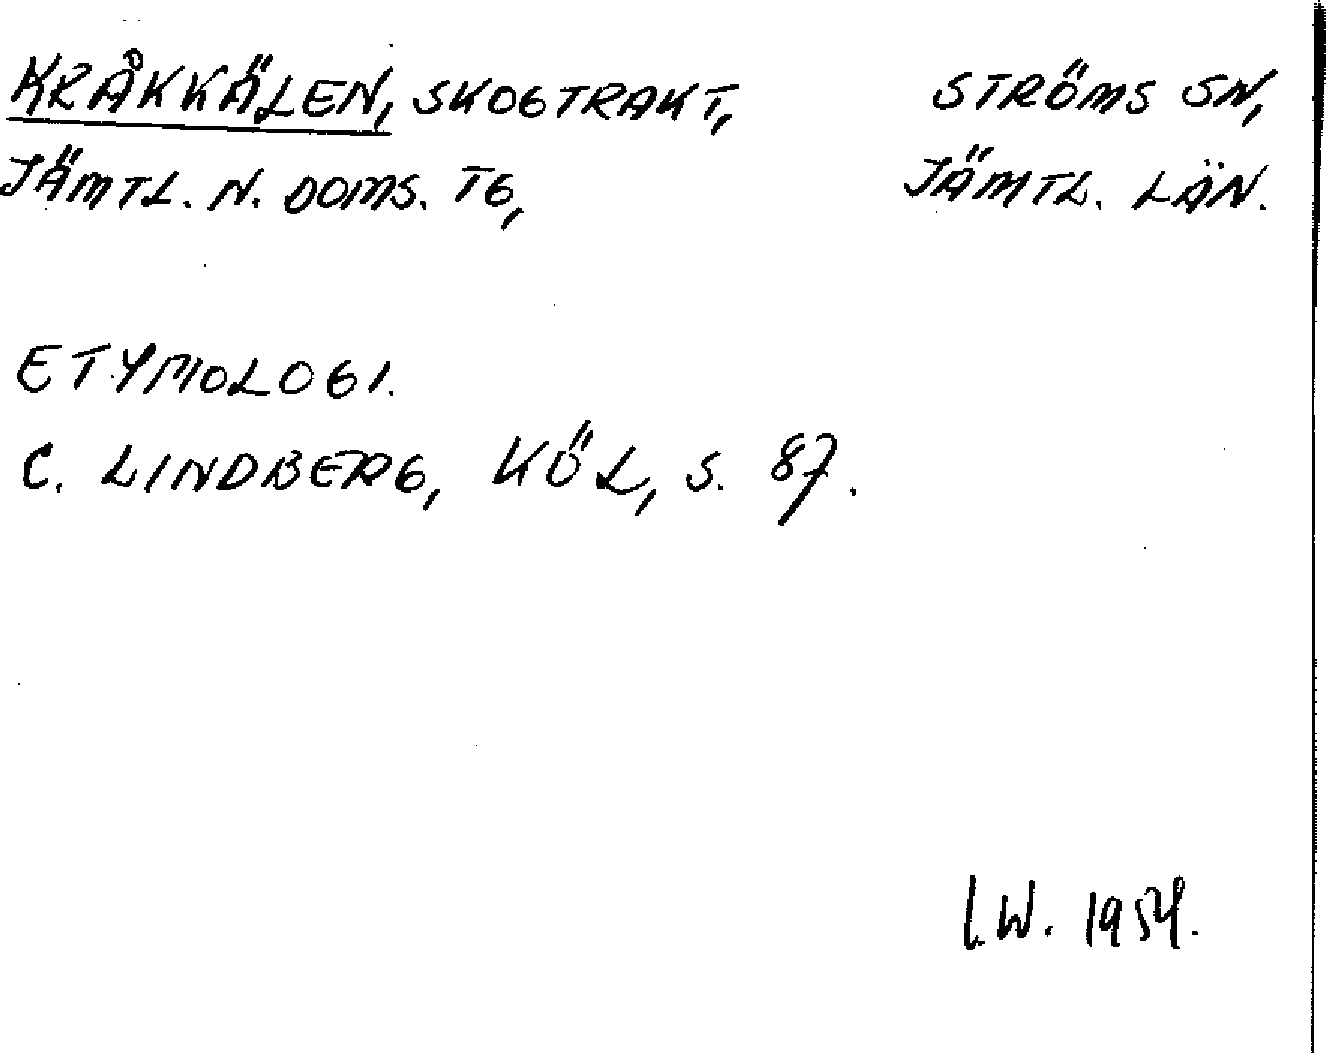 KRÅKKÄLEN, SKOGTRAKT, STRÖMS SN,
JÄMTL. N. DOMS. TG, JÄMTL. LÄN.
ETYMOLOGI.
C. LINDBERG, KÖL, S. 87.
I.W. 1954.